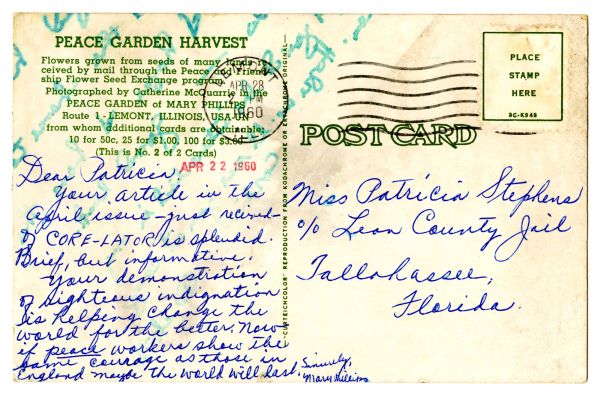 PEACE GARDEN HARVEST
Flowers grown from seeds of many lands re-
ceived by mail through the Peace and Friend-
ship Flower Seed Exchange program.
Photographed by Catherine McQuarrie in the
PEACE GARDEN of MARY PHILLIPS
Route 1 - LEMONT, ILLINOIS, USA-UN
from whom additional cards are obtainable:
10 for 50c, 25 for $1.00, 100 for $3.00
(This is No. 2 of 2 Cards)
APR 22 1960
Dear Patricia:
Your article in the
April issue - just received -
of CORE-LATOR is splendid.
Brief, but informative.
Your demonstration
of righteous indignation
is helping change the
world for the better. Now
if peace workers show the
same courage as those in
England maybe the world will last.
Sincerely,
Mary Phillips
LEMONT
APR 28
PM
1960
REPRODUCTION FROM KODACHROME OR EKTACHROME ORIGINAL
PLACE
STAMP
HERE
8C-K948
POST CARD
Miss Patricia Stephens
c/o Leon County Jail
Tallahassee,
Florida.